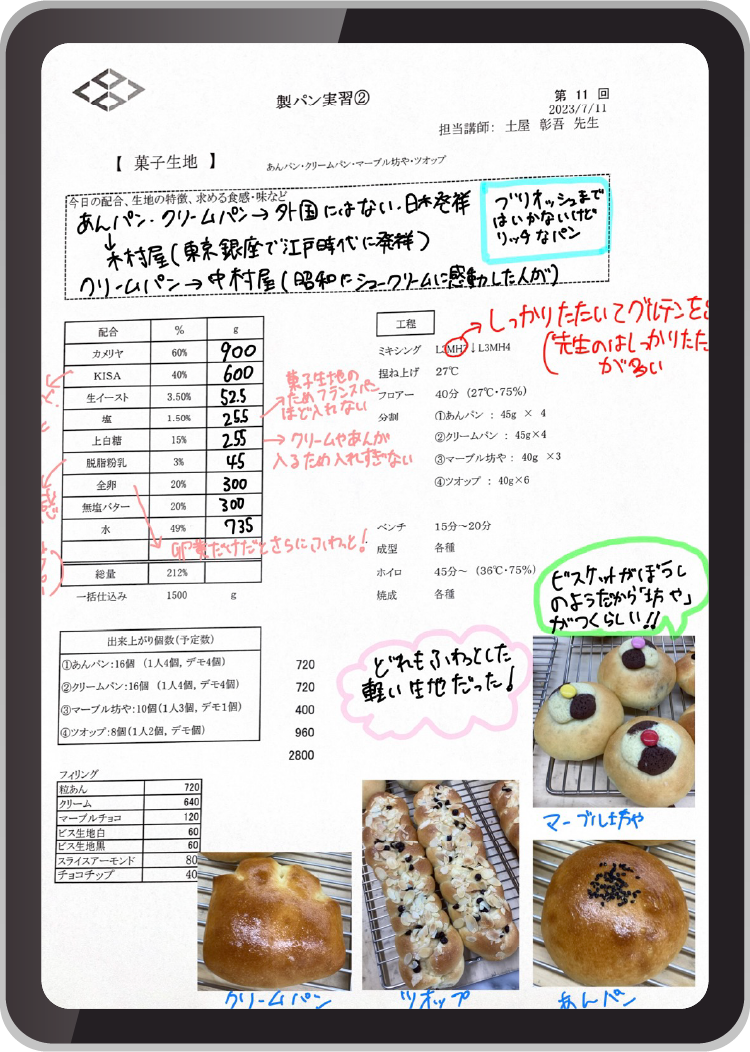 製パン実習②
第 11 回
2023/7/11
担当講師: 土屋 彰吾 先生
【 菓子生地 】
あんパン・クリームパン・マーブル坊や・ツオップ
今日の配合、生地の特徴、求める食感・味など
あんパン・クリームパン→外国にはない・日本発祥
↓
木村屋(東京銀座で江戸時代に発祥)
クリームパン→中村屋(昭和にシュークリームに感動した人が)
ブリオッシュまで
はいかないけど
リッチなパン
配合 % g
カメリヤ 60% 900
KISA 40% 600
生イースト 3.50% 52.5
塩 1.50% 25.5
上白糖 15% 255
脱脂粉乳 3% 45
全卵 20% 300
無塩バター 20% 300
水 49% 735
総量 212%
一括仕込み 1500 g
菓子生地の
ためフランスパ
ほど入れない
→クリームやあんが
入るため入れすぎない
卵黄だけだとさらにふわっと!
工程
ミキシング L3MH7↓L3MH4
→しっかりたたいてグルテンを
(先生のはしっかりたた
が多い
捏ね上げ 27℃
フロアー 40分 (27℃・75%)
分割 ①あんパン : 45g × 4
②クリームパン : 45g×4
③マーブル坊や : 40g ×3
④ツオップ : 40g×6
ベンチ 15分~20分
成型 各種
ホイロ 45分~ (36℃・75%)
焼成 各種
ビスケットがぼうし
のようだから「坊や」
がつくらしい!!
出来上がり個数(予定数)
①あんパン:16個 (1人4個, デモ4個) 720
②クリームパン:16個 (1人4個, デモ4個) 720
③マーブル坊や:10個(1人3個, デモ1個) 400
④ツオップ:8個(1人2個, デモ個) 960
2800
どれもふわっとした
軽い生地だった!
フィリング
粒あん 720
クリーム 640
マーブルチョコ 120
ビス生地白 60
ビス生地黒 60
スライスアーモンド 80
チョコチップ 40
マーブル坊や
クリームパン
ツオップ
あんパン